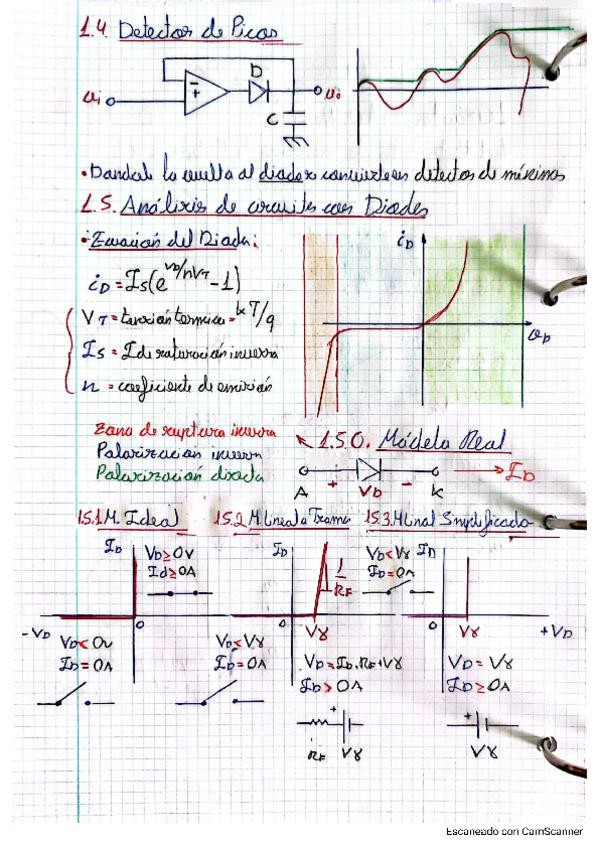 1.4. Detector de Picos
D
Vi
-
+
Vo
C
• Dandole la vuelta al diodo se convierte en detector de mínimos
1.5. Análisis de circuitos con Diodos
• Ecuación del Diodo:
iD = Is(e^VD/nVT - 1)
VT = tensión termica = kT/q
Is = I de saturación inversa
n = coeficiente de emisión
iD
VD
Zona de ruptura inversa
Polarización inversa
Polarización directa
1.5.0. Módelo Real
A + VD - K
ID
1.5.1 M. Ideal
1.5.2 M. lineal a Tramos
1.5.3 M linal Simplificado
ID
VD ≥ 0V
Id ≥ 0A
ID
1
RF
VD < Vγ
ID = 0A
ID
- VD
0
0
Vγ
0
Vγ
+ VD
VD < 0v
ID = 0A
VD < Vγ
ID = 0A
VD = ID · RF + Vγ
ID > 0A
VD = Vγ
ID ≥ 0A
+
RF
Vγ
+
Vγ
Escaneado con CamScanner